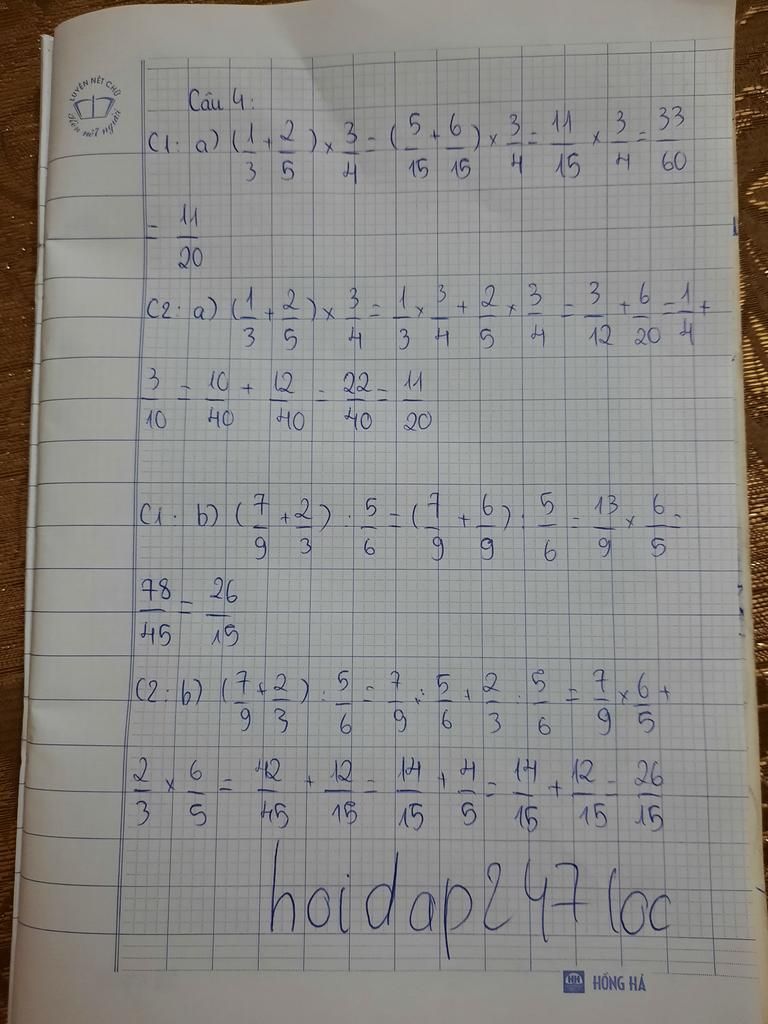 LUYỆN NÉT CHỮ
Rèn nết người
Câu 4:
C1: a) (1/3 + 2/5) × 3/4 = (5/15 + 6/15) × 3/4 = 11/15 × 3/4 = 33/60
= 11/20
C2: a) (1/3 + 2/5) × 3/4 = 1/3 × 3/4 + 2/5 × 3/4 = 3/12 + 6/20 = 1/4 +
3/10 = 10/40 + 12/40 = 22/40 = 11/20
C1: b) (7/9 + 2/3) : 5/6 = (7/9 + 6/9) : 5/6 = 13/9 × 6/5 =
78/45 = 26/15
C2: b) (7/9 + 2/3) : 5/6 = 7/9 : 5/6 + 2/3 : 5/6 = 7/9 × 6/5 +
2/3 × 6/5 = 42/45 + 12/15 = 14/15 + 4/5 = 14/15 + 12/15 = 26/15
hoidap247 loc
HH HỒNG HÀ